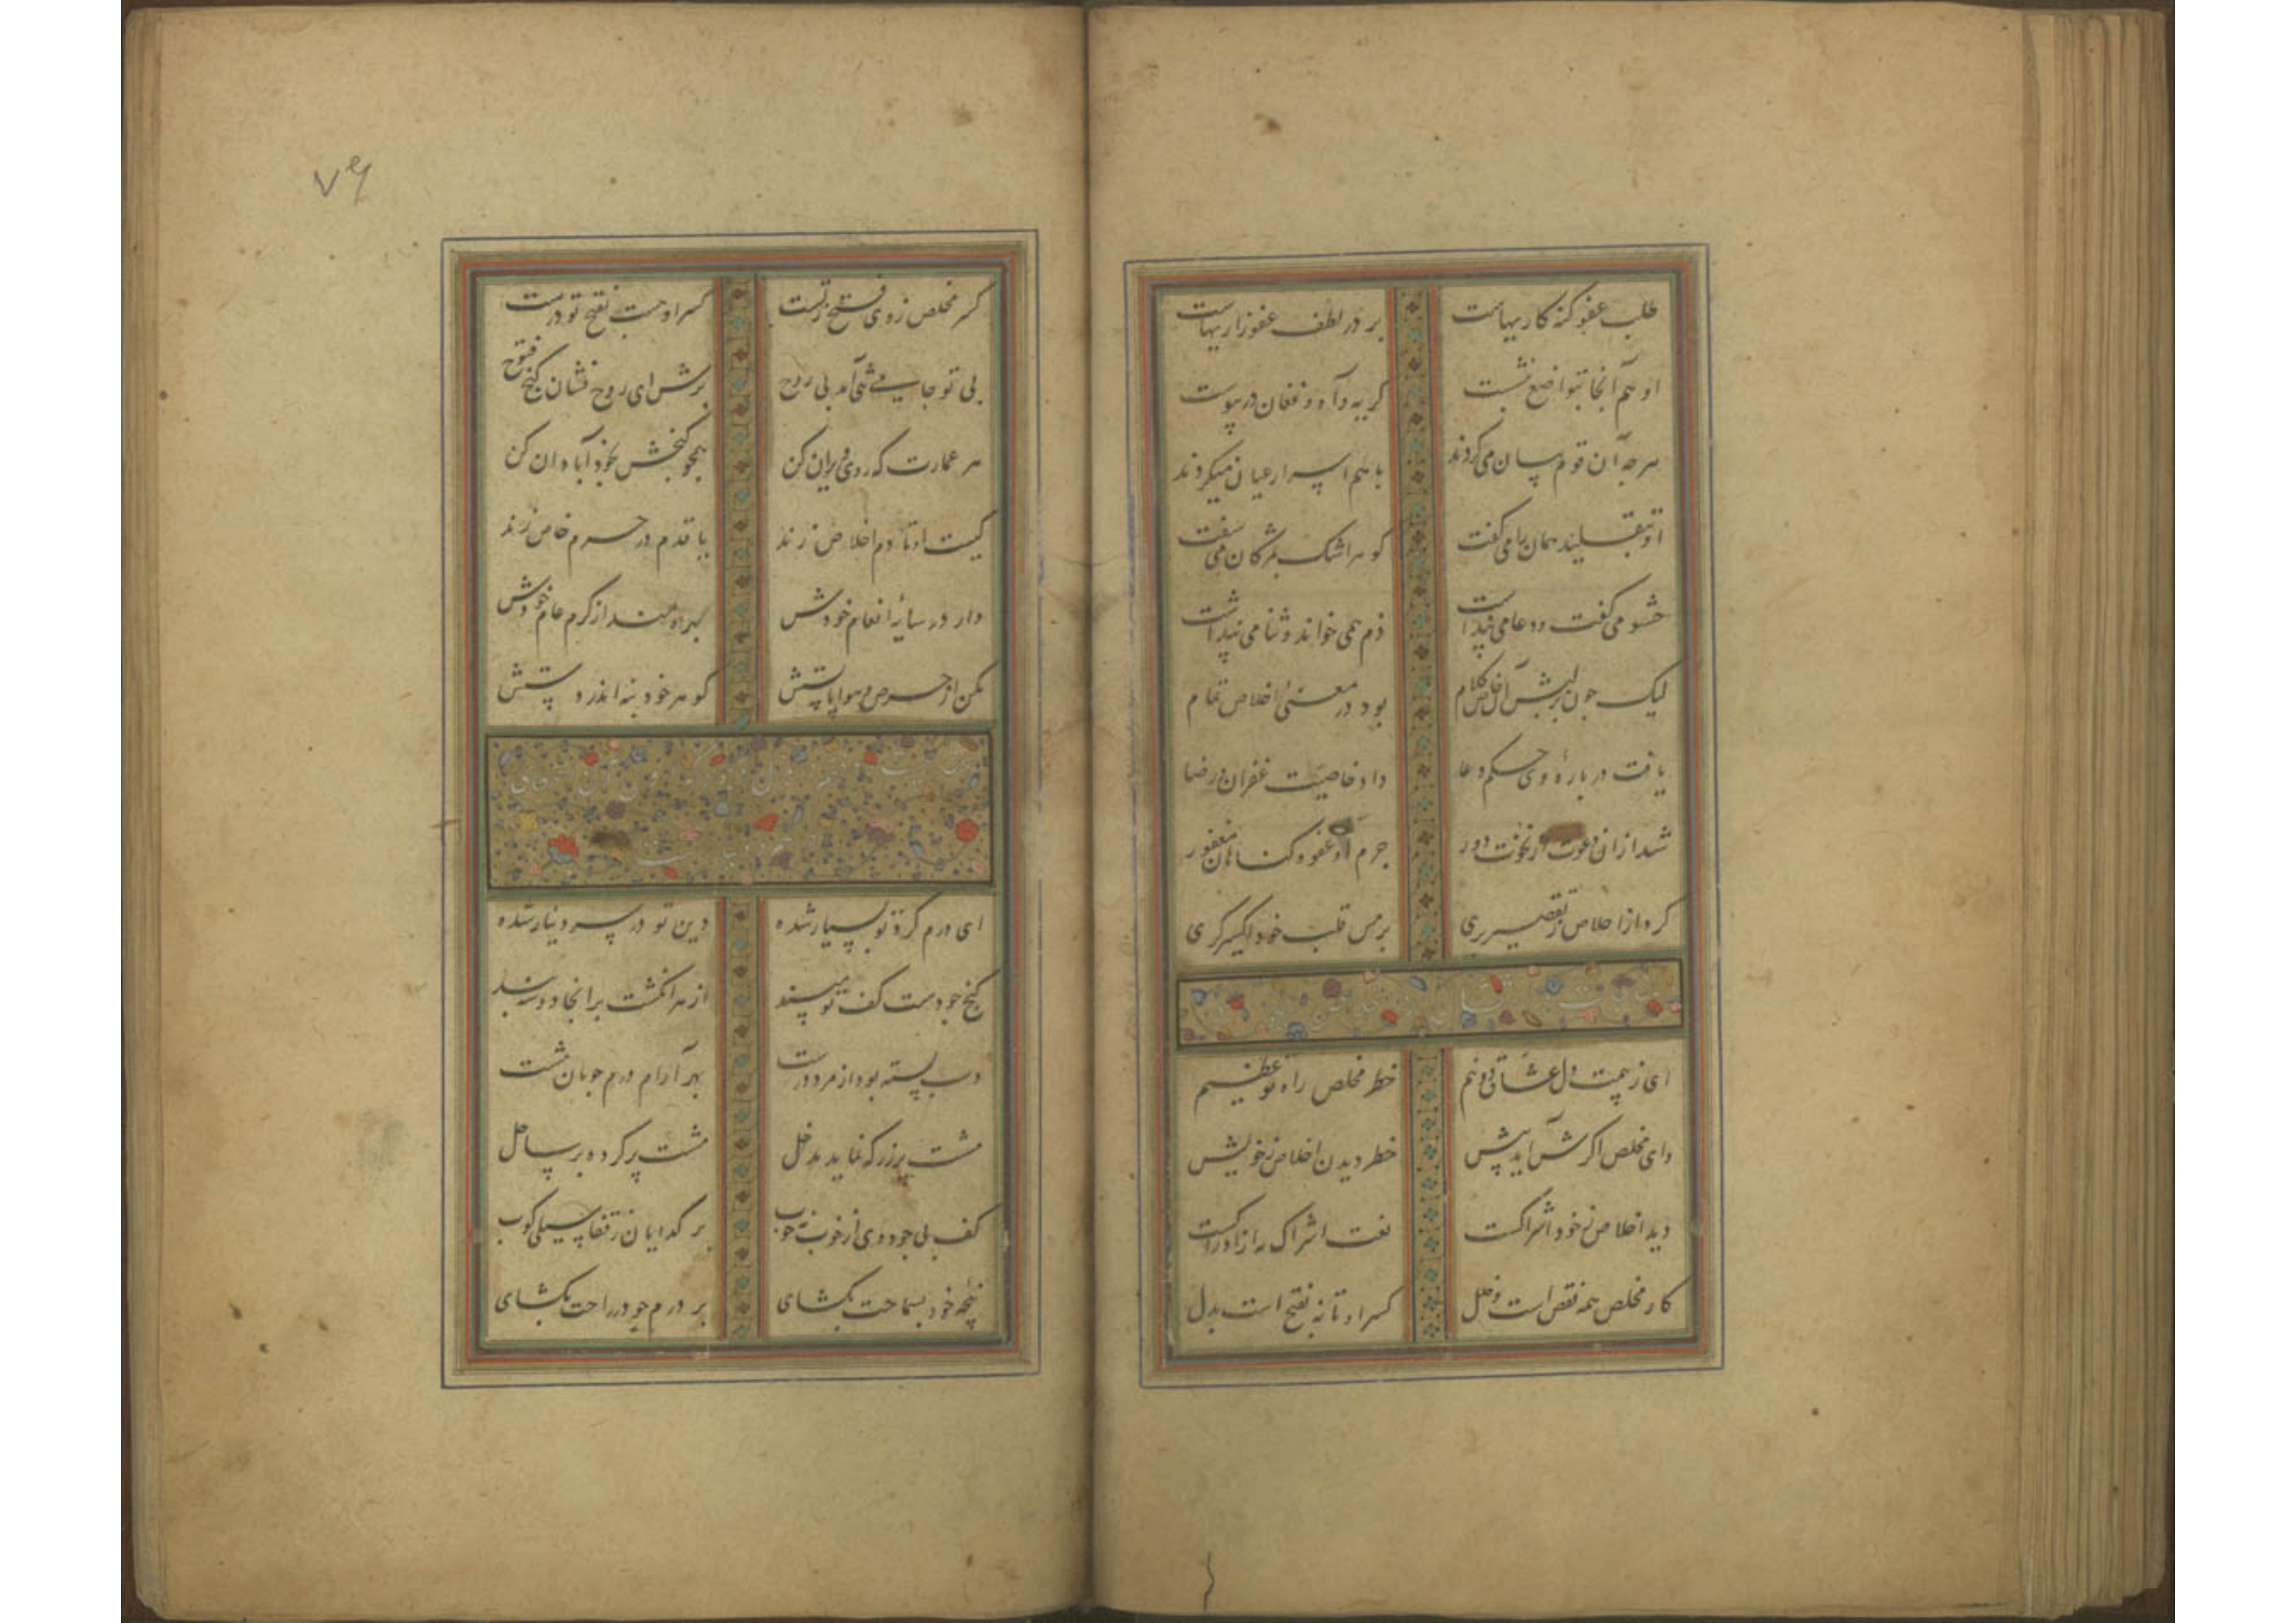 طلب عفو گنه کاریهاست بر در لطف عفو زاریهاست
او هم آنجا بتواضع بنشست گریه و آه و فغان در پیوست
هر چه آن قوم بیان می کردند با هم اسرار عیان میکردند
او بتقلید همان را می گفت گوهر اشک بمژگان می سفت
حشو می گفت و دعا می پنداشت ذم همی خواند و ثنا می پنداشت
لیک چون بر لبش آن خاص کلام بود در معنی اخلاص تمام
یافت در باره وی حکم دعا داد خاصیت غفران و رضا
شد از آن دعوت از نخوت دور جرم او عفو و گناهان مغفور
کرد از اخلاص تقصیر بری بر مس قلب خود اکسیرگری
ای ز بیمت دل عشاق دو نیم خطر مخلص راه تو عظیم
وای مخلص اگرش آید پیش خطر دیدن اخلاص ز خویش
دید اخلاص ز خود اشراکست نعت اشراک نه از ادراکست
کار مخلص همه نقص است و خلل کسر او تا نه بفتح است بدل
۷۶
کسر مخلص ز وی فتح ز تست کسر او جست بفتح تو درست
بی تو جامی شبح آمد بی روح برش ای روح فشان گنج فتوح
هر عمارت که روی ویران کن همچو گنجش بخود آبادان کن
کیست او تا دم اخلاص زند یا قدم در حرم خاص زند
دار در سایه انعام خودش بهره مند از کرم عام خودش
مکن از حرص و هوا پا پستش گوهر خود بنه اندر دستش
ای درم گرد تو بسیار شده دین تو در سر دینار شده
گنج جودست کف تو مپسند از هر انگشت بر آنجا دو سه بند
در بسته بود از مرد درست بهر آرام درم جویان مشت
مشت پر زر که نماید مدخل مشت پر کرده بر سایل
کف بی جود وی از خوب نه خوب بر گدایان ز قفا سیلی کوب
پنجه خود بسماحت بگشای بر درم جو در راحت بگشای